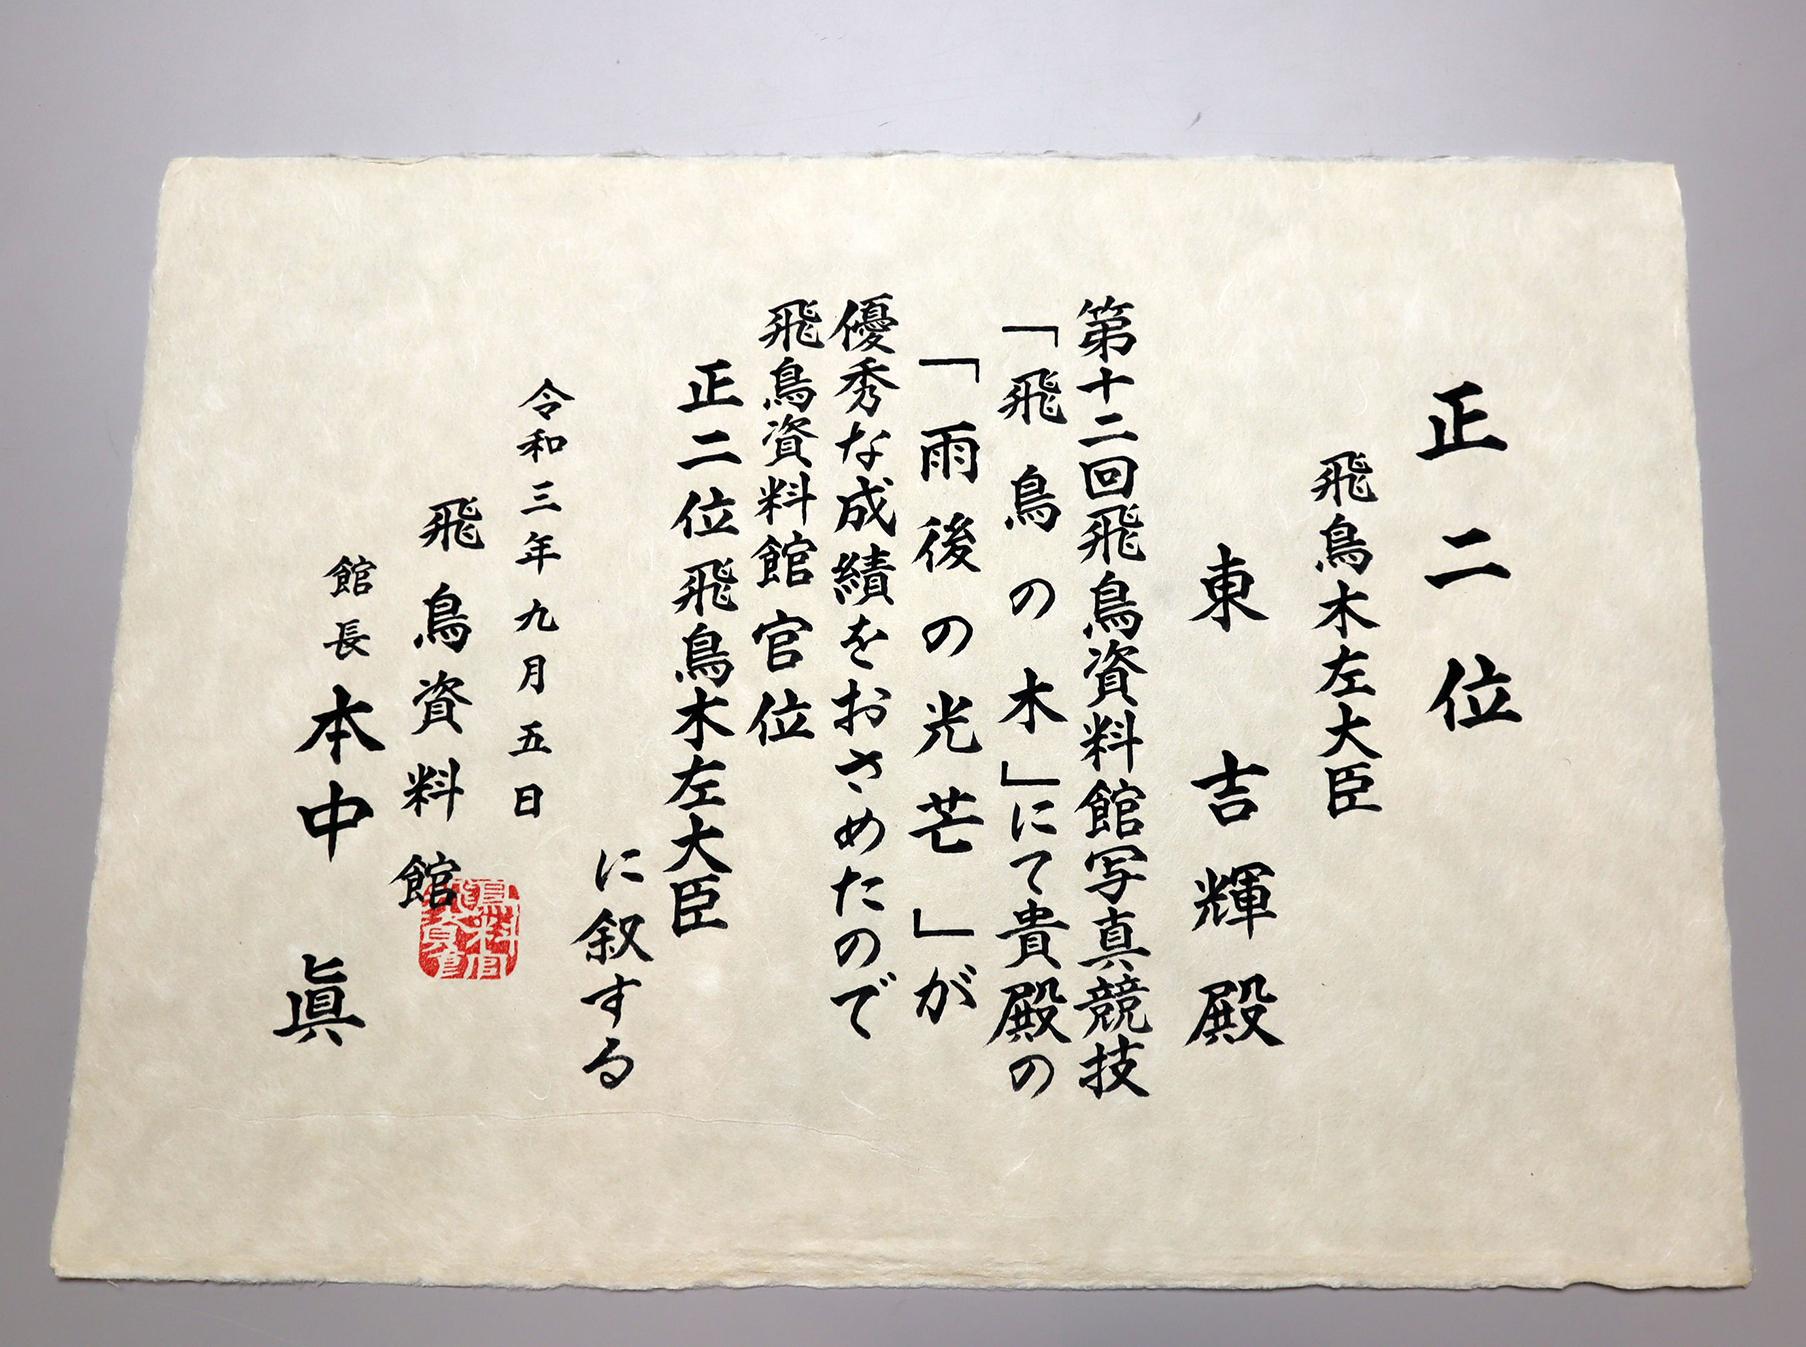 正二位
飛鳥木左大臣
東吉輝殿
第十二回飛鳥資料館写真競技
「飛鳥の木」にて貴殿の
「雨後の光芒」が
優秀な成績をおさめたので
飛鳥資料館官位
正二位飛鳥木左大臣
に叙する
令和三年九月五日
飛鳥資料館
館長 本中 眞